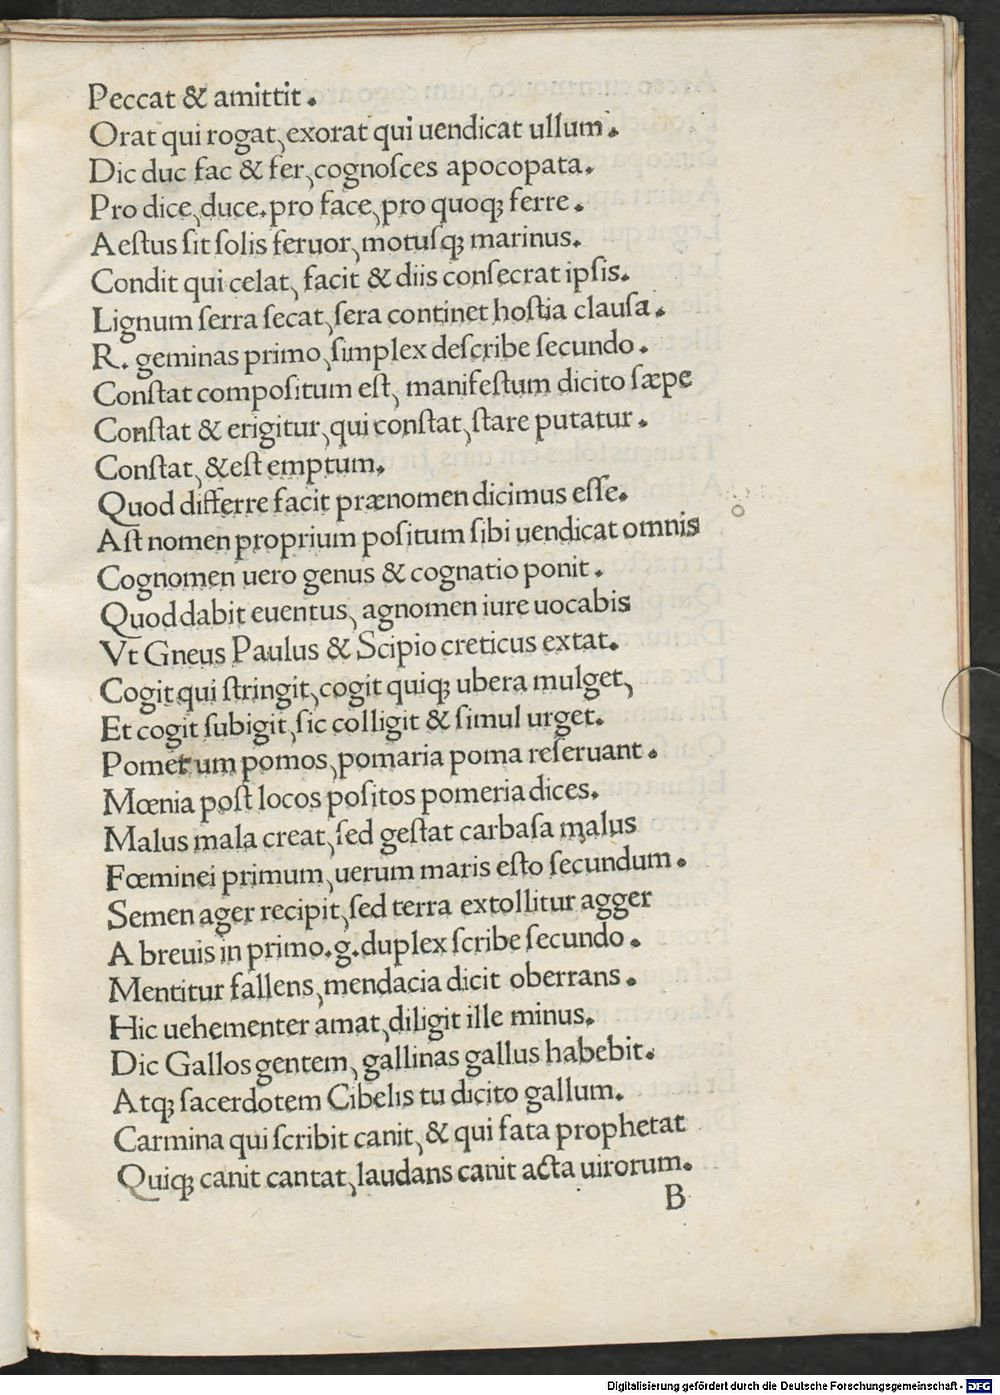 Peccat & amittit.
Orat qui rogat, exorat qui uendicat ullum.
Dic duc fac & fer, cognoſces apocopata.
Pro dice, duce. pro face, pro quoqꝫ ferre.
Aeſtus ſit ſolis feruor, motuſqꝫ marinus.
Condit qui celat, facit & diis conſecrat ipſis.
Lignum ſerra ſecat, ſera continet hoſtia clauſa.
R. geminas primo, ſimplex deſcribe ſecundo.
Conſtat compoſitum eſt, manifeſtum dicito ſæpe
Conſtat & erigitur, qui conſtat, ſtare putatur.
Conſtat, & eſt emptum.
Quod differre facit prænomen dicimus eſſe.
Aſt nomen proprium poſitum ſibi uendicat omnis
Cognomen uero genus & cognatio ponit.
Quod dabit euentus, agnomen iure uocabis
Vt Gneus Paulus & Scipio creticus extat.
Cogit qui ſtringit, cogit quiqꝫ ubera mulget,
Et cogit ſubigit, ſic colligit & ſimul urget.
Pometum pomos, pomaria poma reſeruant.
Mœnia poſt locos poſitos pomeria dices.
Malus mala creat, ſed geſtat carbaſa malus
Fœminei primum, uerum maris eſto ſecundum.
Semen ager recipit, ſed terra extollitur agger
A breuis in primo. g. duplex ſcribe ſecundo.
Mentitur fallens, mendacia dicit oberrans.
Hic uehementer amat, diligit ille minus.
Dic Gallos gentem, gallinas gallus habebit.
Atqꝫ ſacerdotem Cibelis tu dicito gallum.
Carmina qui ſcribit canit, & qui fata prophetat
Quiqꝫ canit cantat, laudans canit acta uirorum.
B
Digitalisierung gefördert durch die Deutsche Forschungsgemeinschaft - DFG